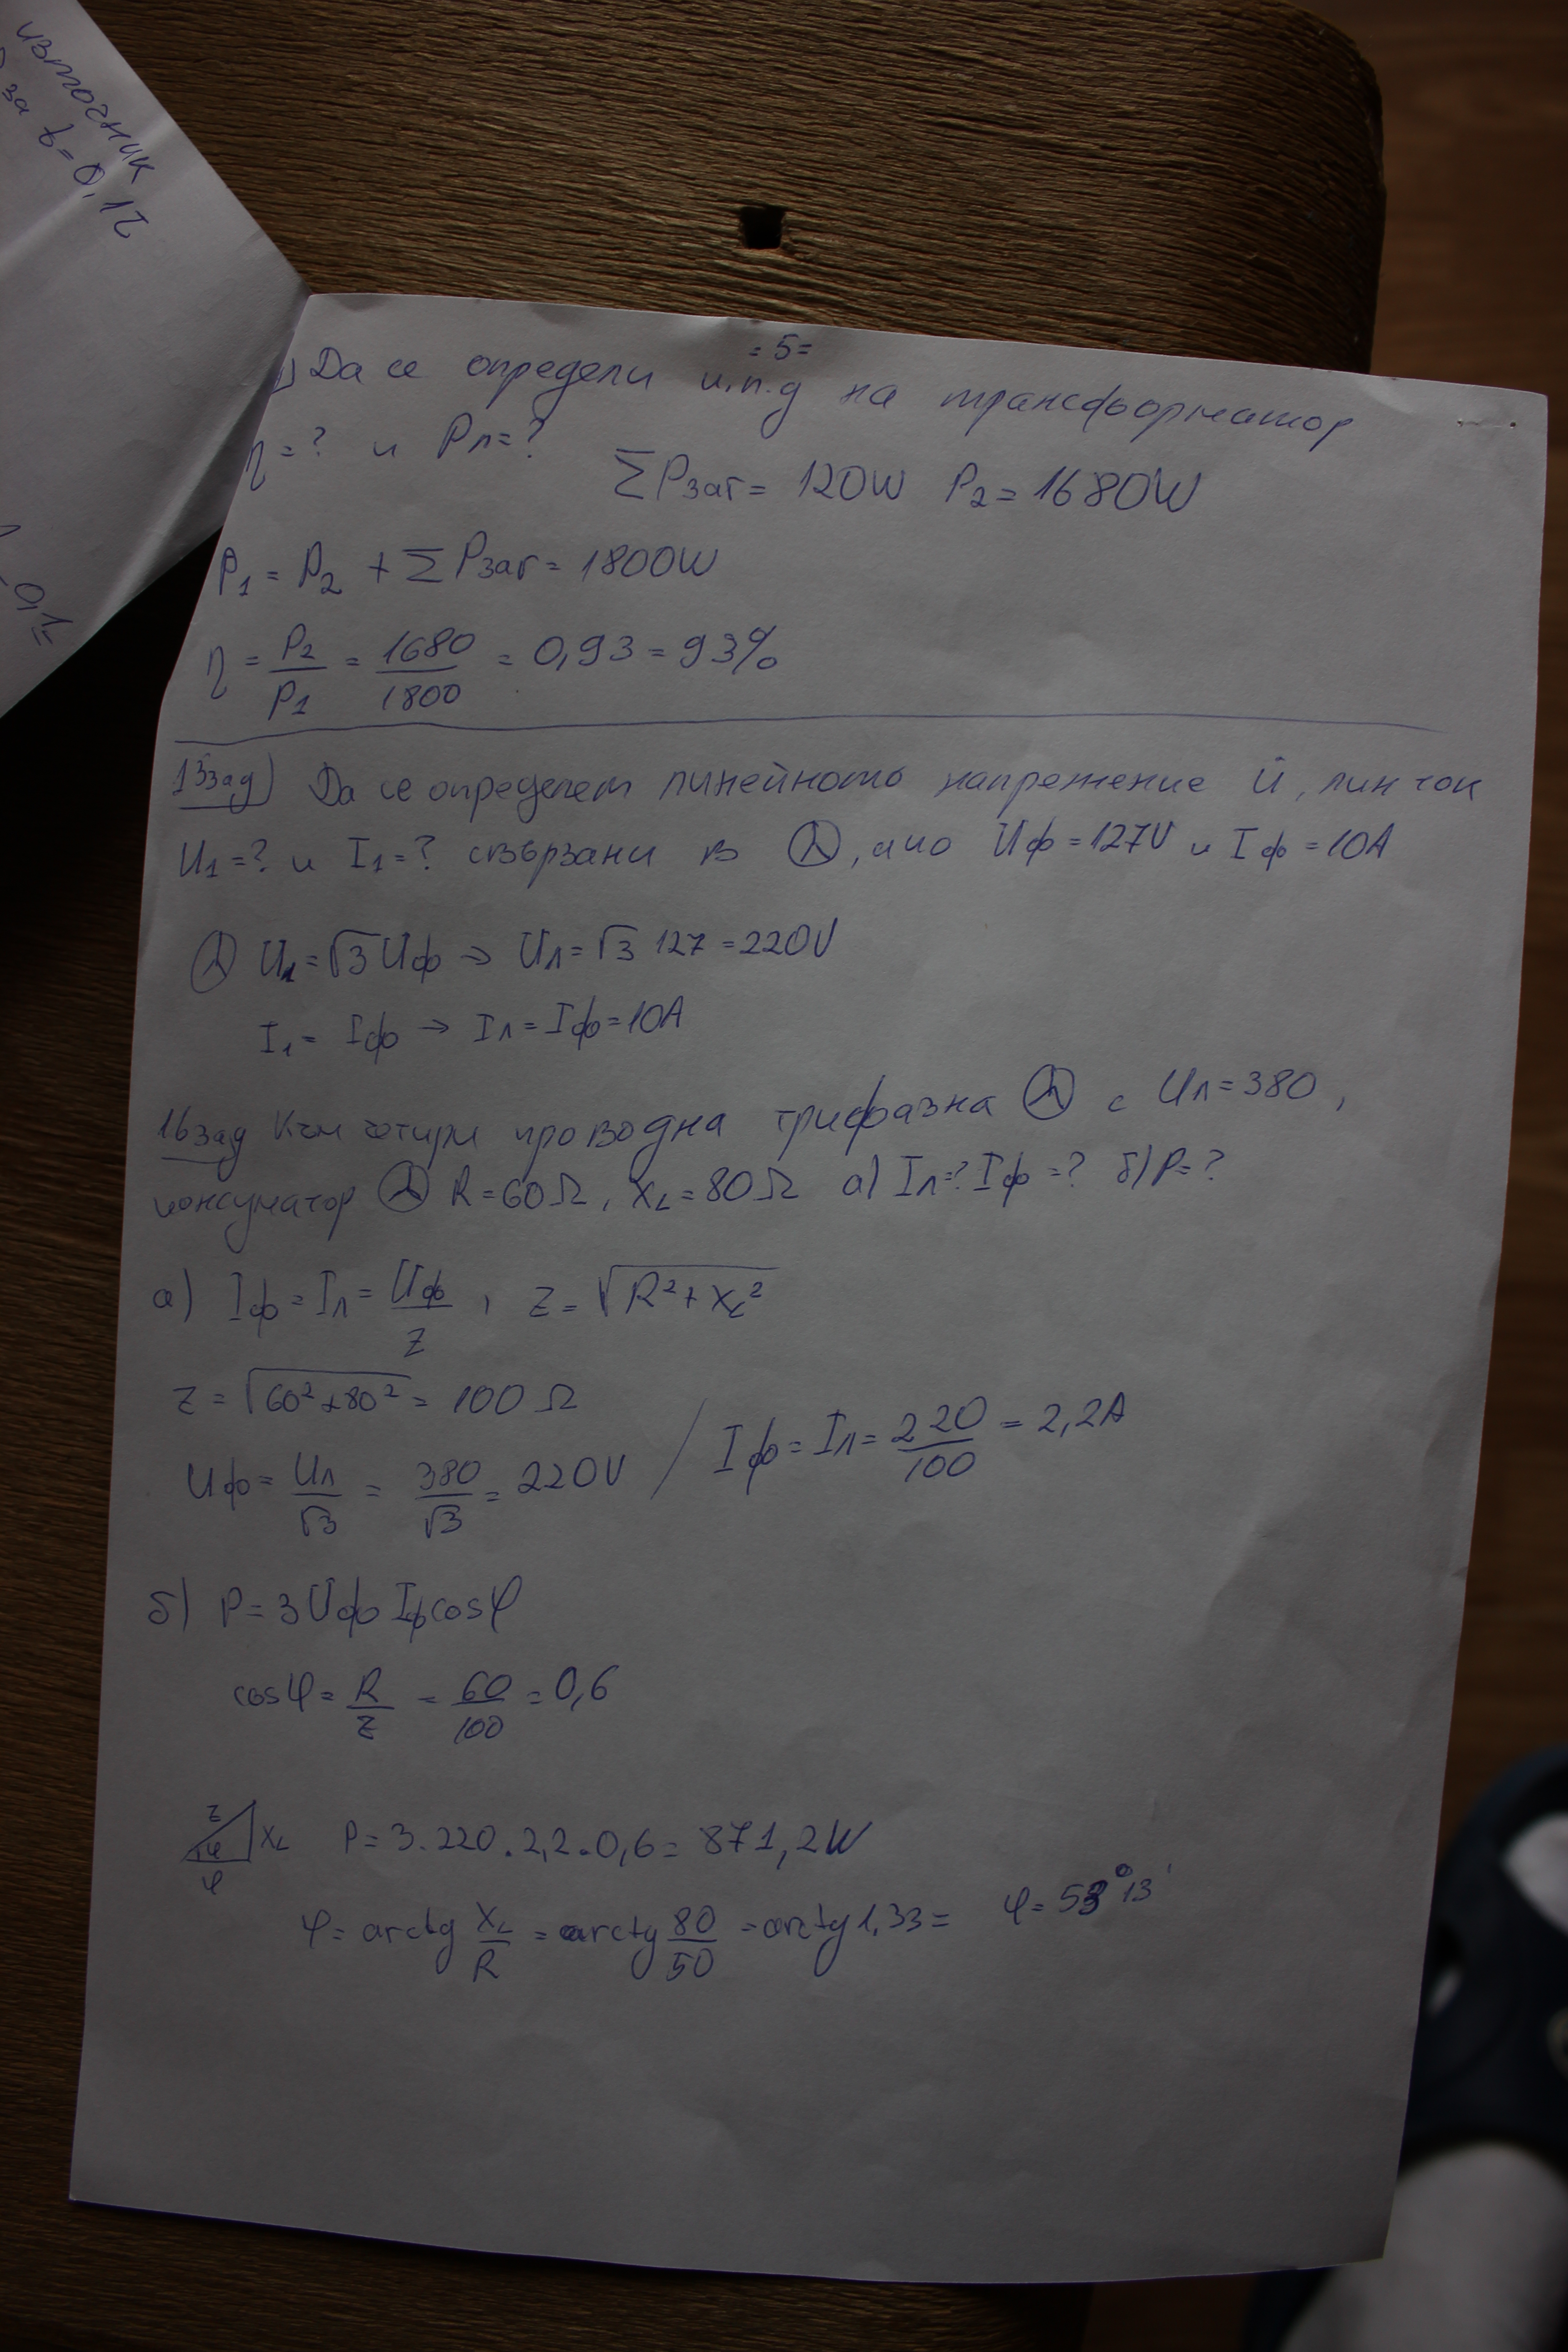 източник
за t=0,12
=5=
Да се определи к.п.д на трансформатор
η=? и Pл=?
ΣPзаг= 120W P₂=1680W
P₁= P₂ + ΣPзаг= 1800W
η = P₂/P₁ = 1680/1800 = 0,93=93%
13зад) Да се определят линейното напрежение и, лин ток
U₁=? и I₁=? свързани в , ако Uф=127V и Iф=10A
Uл=√3 Uф → Uл=√3 127 =220V
I₁= Iф → Iл=Iф=10A
16зад Към четири проводна трифазна с Uл=380,
консуматор R=60Ω, XL=80Ω а) Iл=? Iф=? б) P=?
а) Iф=Iл= Uф/Z , Z= √R²+XL²
Z= √60²+80² = 100Ω
Uф= Uл/√3 = 380/√3 = 220V / Iф=Iл= 220/100 = 2,2A
б) P=3Uф Iф cosφ
cosφ= R/Z = 60/100 = 0,6
Z φ XL φ P= 3.220.2,2.0,6= 871,2W
φ= arctg XL/R = arctg 80/50 =arctg 1,33= φ=53°13'